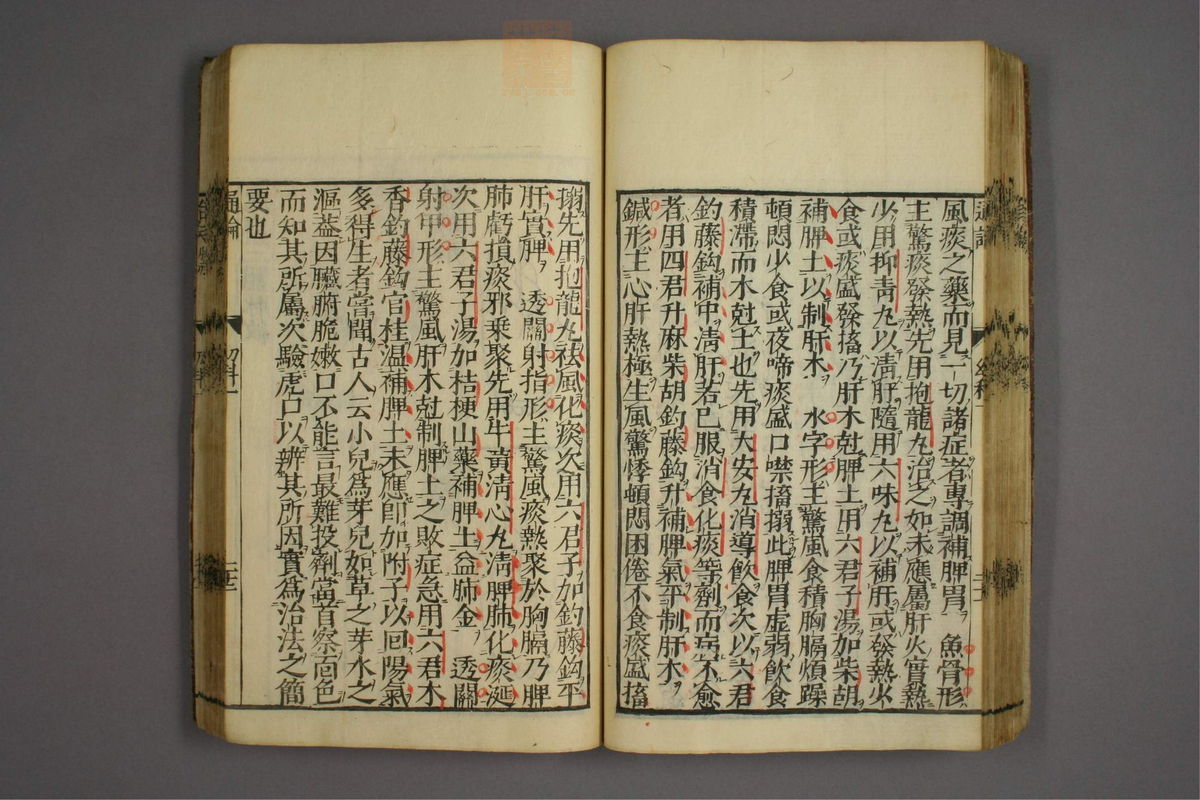 風痰之藥而見一切諸症者專調補脾胃　魚骨形
主驚痰發熱先用抱龍丸治之如未應屬肝火實熱
少用抑青丸以清肝隨用六味丸以補肝或發熱少
食或痰盛發搐乃肝木尅脾土用六君子湯加柴胡
補脾土以制肝木　水字形主驚風食積胸膈煩躁
頓悶少食或夜啼痰盛口噤搐搦此脾胃虛弱飲食
積滯而木尅土也先用大安丸消導飲食次以六君
釣藤鈎補中清肝若已服消食化痰等劑而病不愈
者用四君升麻柴胡釣藤鈎升補脾氣平制肝木
鍼形主心肝熱極生風驚悸頓悶困倦不食痰盛搐
搦先用抱龍丸祛風化痰次用六君子加釣藤鈎平
肝實脾　透關射指形主驚風痰熱聚於胸膈乃脾
肺虧損痰邪乘聚先用牛黃清心丸清脾肺化痰涎
次用六君子湯加桔梗山藥補脾土益肺金　透關
射甲形主驚風肝木尅制脾土之敗症急用六君木
香釣藤鈎官桂温補脾土未應卽加附子以回陽氣
多得生者嘗聞古人云小兒爲芽兒如草之芽水之
漚葢因臟腑脆嫩口不能言最難投劑當首察面色
而知其所屬次驗虎口以辨其所因實爲治法之簡
要也